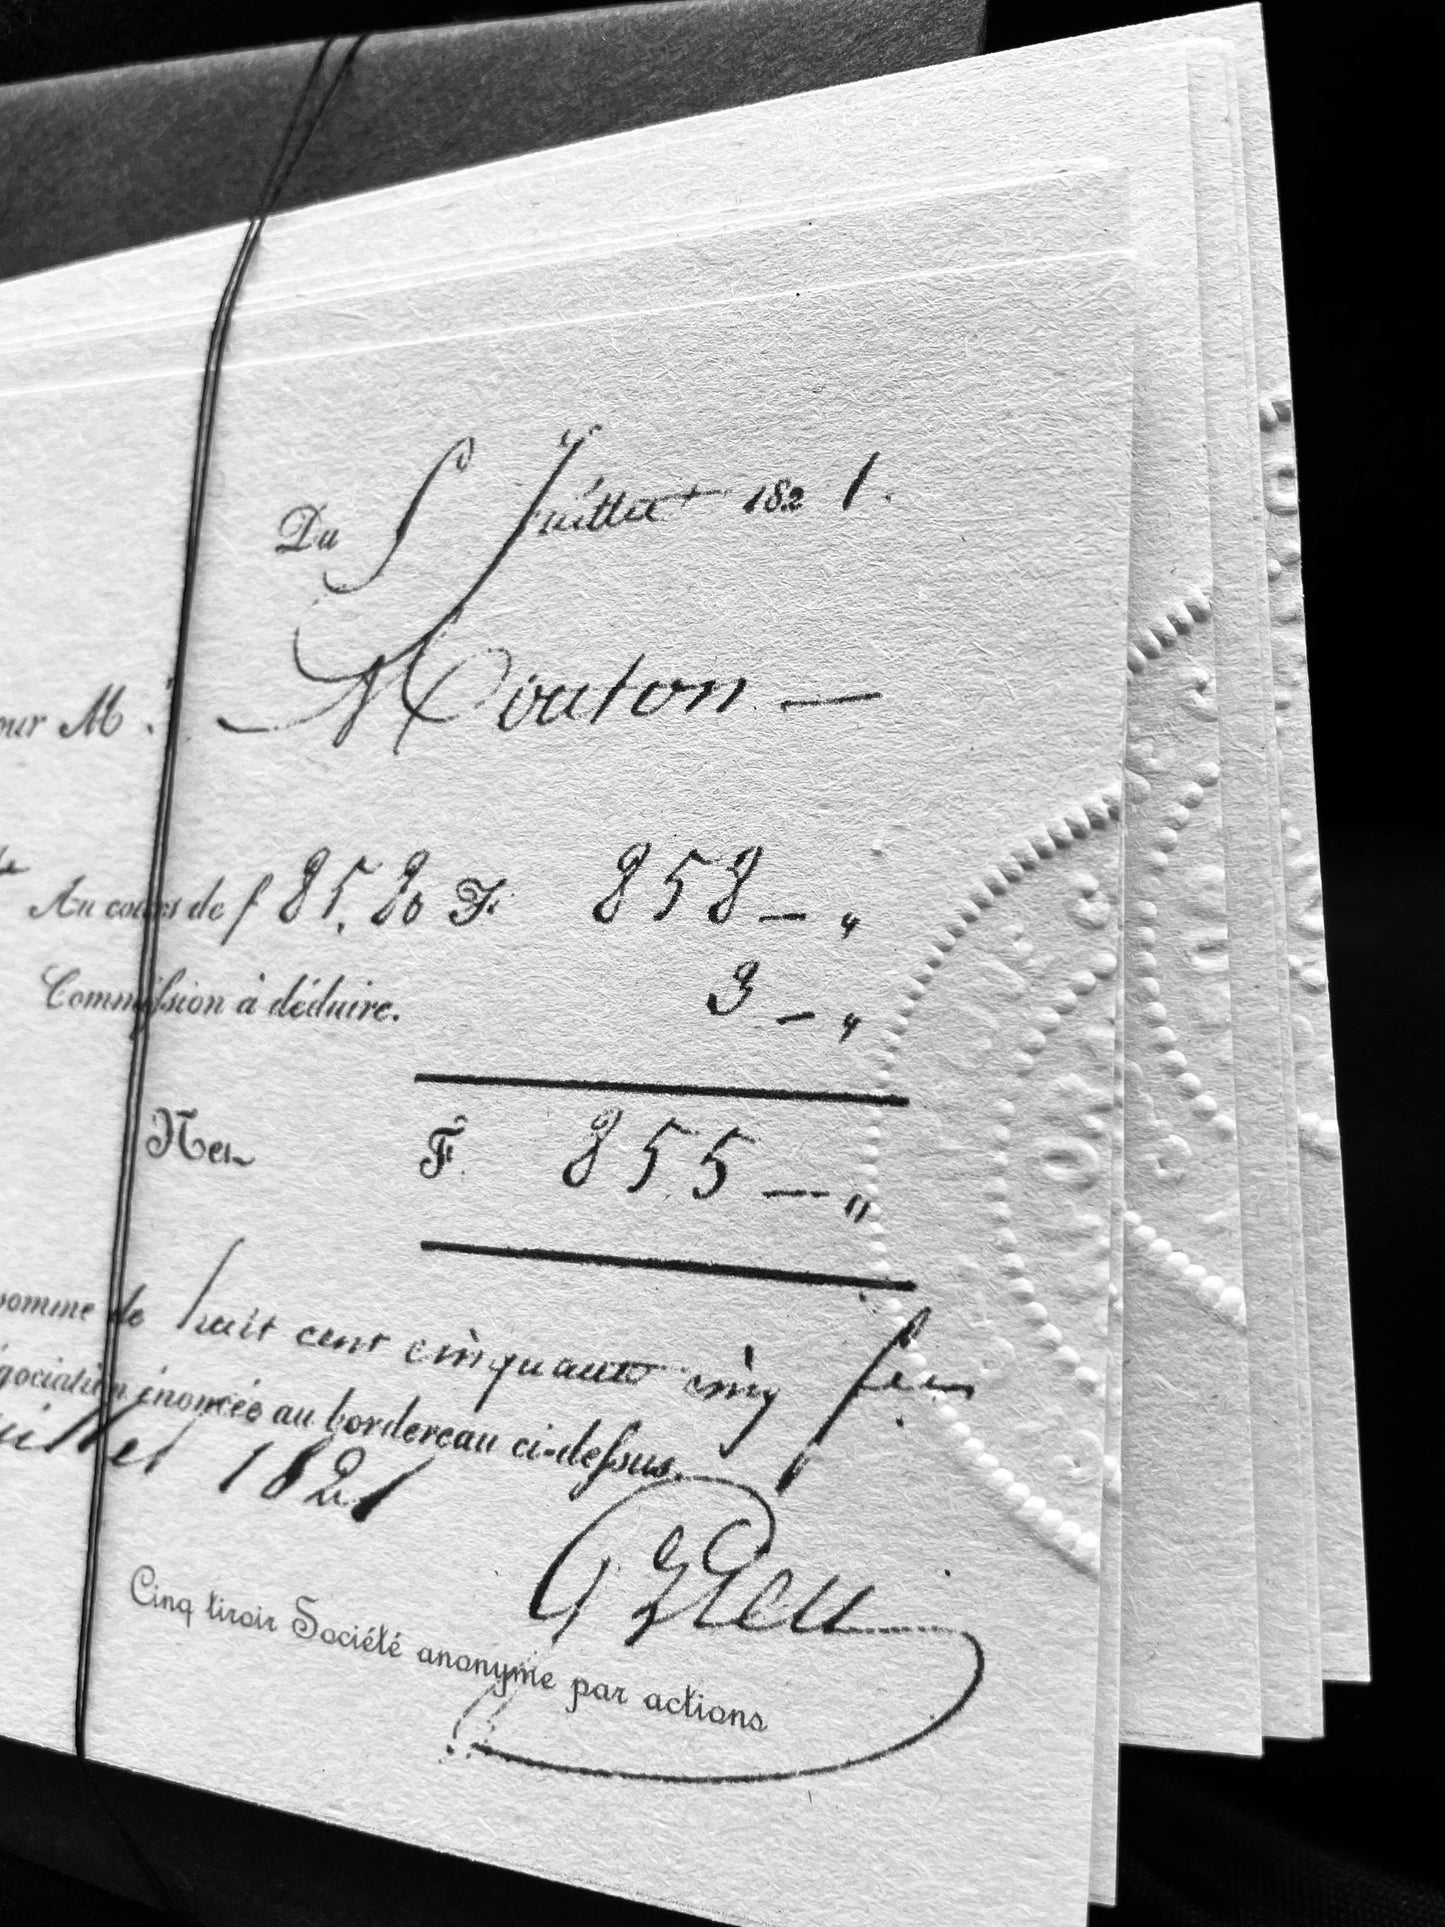 Du 5 Juillet 1821.
our M. Mouton —
Au cours de f 85,80 F. 858 — "
Commission à déduire. 3 — "
Net F. 855 — "
somme de huit cent cinquante cinq fcs
énoncée au bordereau ci-dessus.
uillet 1821
Cinq tiroir Société anonyme par actions